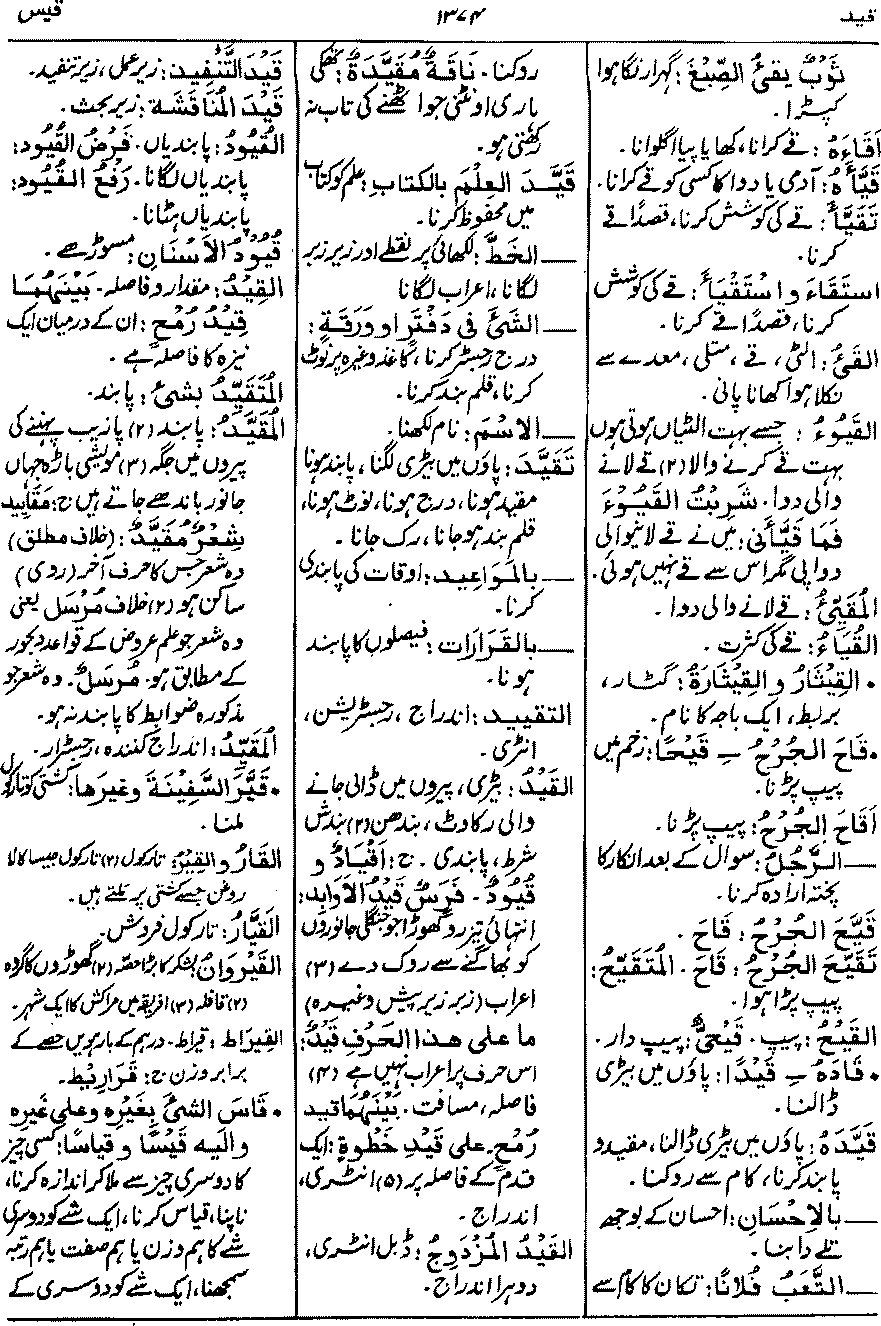 قید
۱۳۷۴
قیس
ثَوْبٌ یَقِیُٔ الصِّبْغَ: گہرا رنگا ہوا
کپڑا۔
اَقَاءَہُ: قے کرانا، کھایا پیا اگلوانا۔
قَیَّأَہُ: آدمی یا دوا کا کسی کو قے کرانا۔
تَقَیَّأَ: قے کی کوشش کرنا، قصدًا قے
کرنا۔
اسْتَقَاءَ و اسْتَقْیَأَ: قے کی کوشش
کرنا، قصدًا قے کرنا۔
القَیْءُ: الٹی، قے، متلی، معدے سے
نکلا ہوا کھانا پانی۔
القَیُوءُ: جسے بہت الٹیاں ہوتی ہوں
بہت قے کرنے والا (۲) قے لانے
والی دوا۔ شَرِبْتُ القَیُوْءَ
فَمَا قَیَّأَنِی: میں نے قے لانیوالی
دوا پی مگر اس سے قے نہیں ہوئی۔
المُقَیِّئُ: قے لانے والی دوا۔
القُیَاءُ: قے کی کثرت۔
• القِیْثَارُ و القِیْثَارَۃُ: گٹار،
بربط، ایک باجہ کا نام۔
• قَاحَ الجُرْحُ ــِـ قَیْحًا: زخم میں
پیپ پڑنا۔
اَقَاحَ الجُرْحُ: پیپ پڑنا۔
ـــ الرَّجُلُ: سوال کے بعد انکار کا
پختہ ارادہ کرنا۔
قَیَّحَ الجُرْحُ: قَاحَ۔
تَقَیَّحَ الجُرْحُ: قَاحَ۔ المُتَقَیِّحُ:
پیپ پڑا ہوا۔
القَیْحُ: پیپ۔ قَیْحِیٌّ: پیپ دار۔
• قَادَہُ ــِـ قَیْدًا: پاؤں میں بیڑی
ڈالنا۔
قَیَّدَہُ: پاؤں میں بیڑی ڈالنا، مقید و
پابند کرنا، کام سے روکنا۔
ـــ بالاِحْسَانِ: احسان کے بوجھ
تلے دابنا۔
ـــ التَّعَبُ فُلَانًا: تکان کا کام سے
روکنا۔ نَاقَۃٌ مُقَیَّدَۃٌ: تھکی
ہاری اونٹنی جو اٹھنے کی تاب نہ
رکھتی ہو۔
قَیَّدَ العِلْمَ بالکِتَابِ: علم کو کتاب
میں محفوظ کرنا۔
ـــ الخَطَّ: لکھائی پر نقطے اور زیر زبر
لگانا، اعراب لگانا
ـــ الشَّیْ فی دَفْتَرٍ او وَرَقَۃٍ:
درج رجسٹر کرنا، کاغذ وغیرہ پر نوٹ
کرنا، قلم بند کرنا۔
ـــ الاسْمَ: نام لکھنا۔
تَقَیَّدَ: پاؤں میں بیڑی لگنا، پابند ہونا
مقید ہونا، درج ہونا، نوٹ ہونا،
قلم بند ہوجانا، رک جانا۔
ـــ بالمَوَاعِیدِ: اوقات کی پابندی
کرنا۔
ـــ بالقَرَارَاتِ: فیصلوں کا پابند
ہونا۔
التقیید: اندراج، رجسٹریشن،
انٹری۔
القَیْدُ: بیڑی، پیروں میں ڈالی جانے
والی رکاوٹ، بندھن (۲) بندش
شرط، پابندی۔ ج: اَقْیَادٌ و
قُیُودٌ۔ فَرَسٌ قَیْدُ الاَوَابِدِ:
انتہائی تیز رو گھوڑا جو جنگلی جانوروں
کو بھاگنے سے روک دے (۳)
اعراب (زبر زیر پیش وغیرہ)
ما علی ھذا الحَرْفِ قَیْدٌ:
اس حرف پر اعراب نہیں ہے (۴)
فاصلہ، مسافت۔ بَیْنَہُمَا قید
رُمْحٍ۔ علی قَیْدِ خَطْوَۃٍ: ایک
قدم کے فاصلہ پر (۵) انٹری،
اندراج۔
القَیْدُ المُزْدَوِجُ: ڈبل انٹری،
دوہرا اندراج۔
قَیْدَ التَّنْفِیْذِ: زیر عمل، زیر تنفیذ۔
قَیْدَ المُنَاقَشَۃِ: زیر بحث۔
القُیُودُ: پابندیاں۔ فَرْضُ القُیُودِ:
پابندیاں لگانا۔ رَفْعُ القُیُودِ:
پابندیاں ہٹانا۔
قُیُودُ الاَسْنَانِ: مسوڑھے۔
القِیْدُ: مقدار و فاصلہ۔ بَیْنَہُمَا
قِیْدُ رُمْحٍ: ان کے درمیان ایک
نیزہ کا فاصلہ ہے۔
المُتَقَیِّدُ بشیٔ: پابند۔
المُقَیَّدُ: پابند (۲) پازیب پہننے کی
پیروں میں جگہ (۳) مویشی باڑہ جہاں
جانور باندھے جاتے ہیں ج: مَقَایِید
شِعْرٌ مُقَیَّدٌ: (خلاف مطلق)
وہ شعر جس کا حرف آخر (روی)
ساکن ہو (۲) خلاف مُرْسَل یعنی
وہ شعر جو علم عروض کے قواعد و بحور
کے مطابق ہو۔ مُرسَلٌ۔ وہ شعر جو
مذکورہ ضوابط کا پابند نہ ہو۔
المُقَیِّدُ: اندراج کنندہ، رجسٹرار۔
• قَیَّرَ السَّفِیْنَۃَ وغیرَھا: کشتی کو تارکول
ملنا۔
القَارُ والقِیْرُ: تارکول (۲) تارکول جیسا کالا
روغن جسے کشتی پر ملتے ہیں۔
القَیَّارُ: تارکول فروش۔
القَیْرَوَانُ: لشکر کا بڑا حصہ (۲) گھوڑوں کا گروہ
(۲) قافلہ (۳) افریقہ میں مراکش کا ایک شہر۔
القِیْرَاط: قیراط۔ درہم کے بارہویں حصے کے
برابر وزن ج: قَرَارِیْطُ۔
• قَاسَ الشَّیْ بِغَیْرِہٖ وعلی غَیْرِہٖ
والیہ قَیْسًا و قِیَاسًا: کسی چیز
کا دوسری چیز سے ملا کر اندازہ کرنا،
ناپنا، قیاس کرنا، ایک شے کو دوسری
شے کا ہم وزن یا ہم صفت یا ہم رتبہ
سمجھنا، ایک شے کو دوسری کے